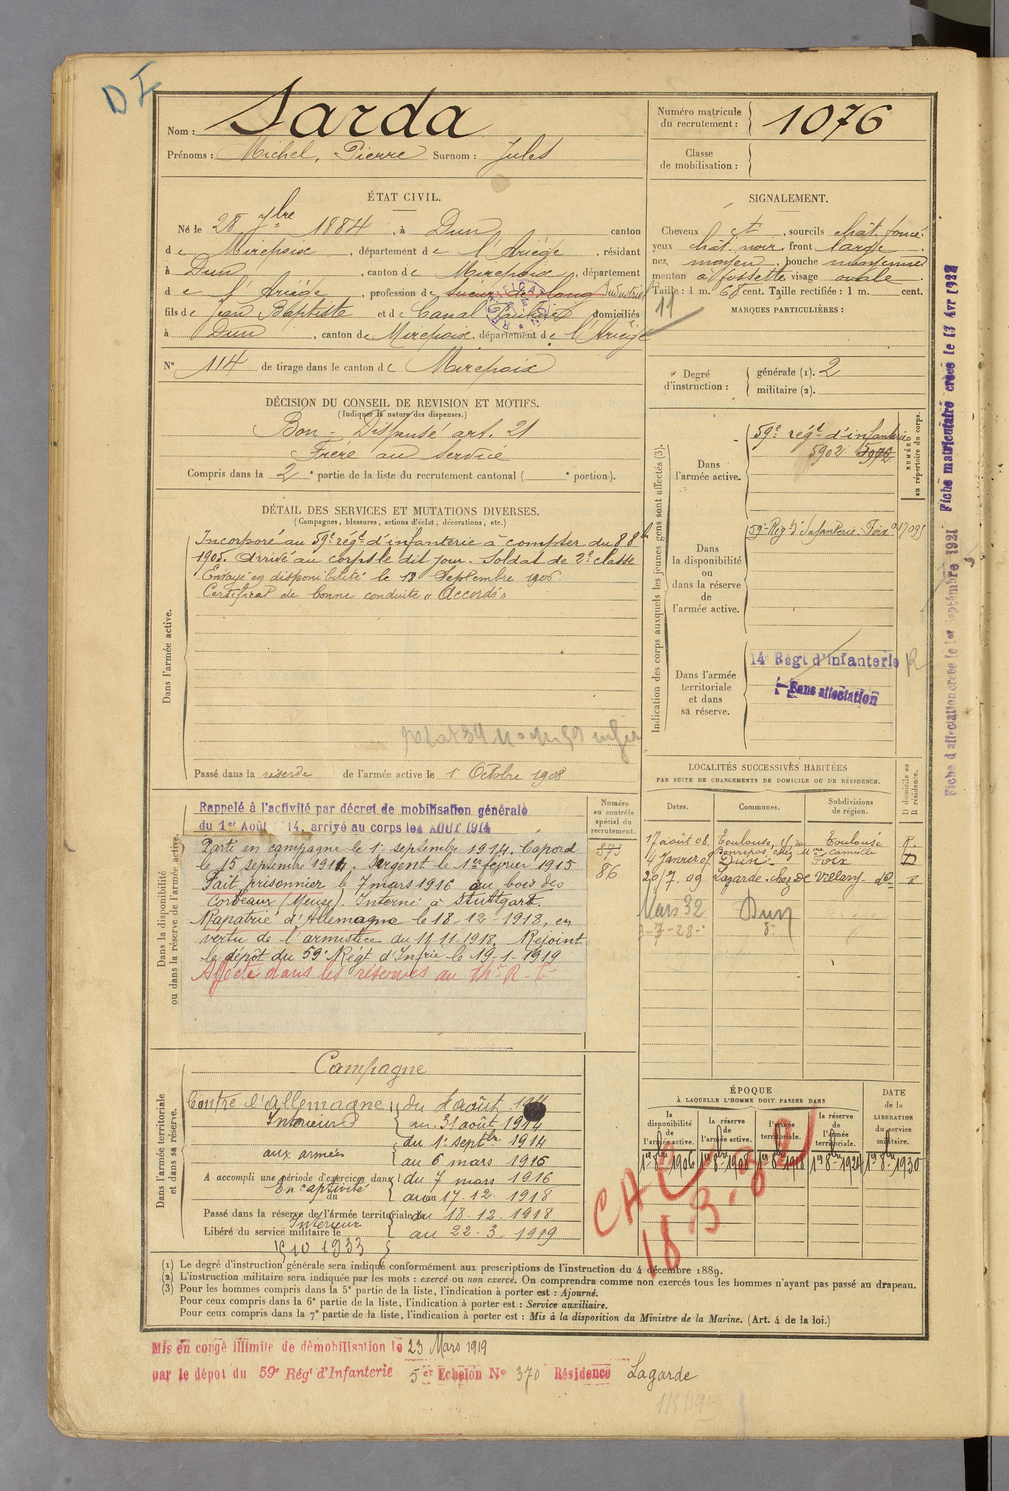 D I
Nom : Sarda
Prénoms : Michel, Pierre Surnom : Jules
Numéro matricule du recrutement : 1076
Classe de mobilisation :
ÉTAT CIVIL.
Né le 28 7bre 1884, à Dun canton
de Mirepoix, département de l'Ariège, résidant
à Dun, canton de Mirepoix, département
de l'Ariège, profession de scieur de long Industriel
fils de Jean Baptiste et de Canal domiciliés
à Dun, canton de Mirepoix, département de l'Ariège
N° 114 de tirage dans le canton de Mirepoix
SIGNALEMENT.
Cheveux et, sourcils chât. foncé
yeux chât. noir, front large,
nez moyen, bouche moyenne
menton à fossette visage ovale
Taille : 1 m. 68 cent. Taille rectifiée : 1 m. cent.
MARQUES PARTICULIÈRES :
11
Degré d'instruction : générale (1). 2
militaire (2).
DÉCISION DU CONSEIL DE REVISION ET MOTIFS.
(Indiquer la nature des dispenses.)
Bon - Dispensé art. 21
Frère au service
Compris dans la 2e partie de la liste du recrutement cantonal ( e portion).
DÉTAIL DES SERVICES ET MUTATIONS DIVERSES.
(Campagnes, blessures, actions d'éclat, décorations, etc.)
Dans l'armée active.
Incorporé au 59e régt d'infanterie à compter du 8 8bre
1905. Arrivé au corps le dit jour. Soldat de 2e classe
Envoyé en disponibilité le 18 Septembre 1906
Certificat de bonne conduite « Accordé »
Passé dans la réserve de l'armée active le 1er Octobre 1908
Indication des corps auxquels les jeunes gens sont affectés (3).
NUMÉRO au répertoire du corps.
Dans l'armée active.
59e régt d'infanterie
5902 5972
Dans la disponibilité ou dans la réserve de l'armée active.
59e Rég d'Infanterie Foix
Dans l'armée territoriale et dans sa réserve.
14e Régt d'Infanterie R
Sans affectation
Fiche d'affectation créée le 1er Septembre 1921
Fiche matriculaire créée le 13 Avr 1932
LOCALITÉS SUCCESSIVES HABITÉES
PAR SUITE DE CHANGEMENTS DE DOMICILE OU DE RÉSIDENCE.
D domicile ou R résidence.
Dates. Communes. Subdivisions de région.
17 août 08 Toulouse, Toulouse R.
chez Mme Camille
4 janvier 09 Dun Foix D
20/7. 09 Lagarde chez De Villary do R
Mars 32 Dun
3-7-28
Dans la disponibilité ou dans la réserve de l'armée active
Numéro au contrôle spécial du recrutement.
373
86
Rappelé à l'activité par décret de mobilisation générale
du 1er Août 14, arrivé au corps le 4 AOUT 1914
Parti en campagne le 1er septembre 1914. Caporal
le 15 septembre 1914, Sergent le 1er février 1915
Fait prisonnier le 7 mars 1916 au bois des
Corbeaux (Meuse). Interné à Stuttgart.
Rapatrié d'Allemagne le 18-12-1918, en
vertu de l'armistice du 11 11 1918. Rejoint
le dépôt du 59e Régt d'Infrie le 19-1-1919
Affecté dans les réserves au 14e R. I
Dans l'armée territoriale et dans sa réserve.
Campagne
Contre l'Allemagne
Intérieur du 4 août 1914
au 31 août 1914
aux armées du 1er septbre 1914
au 6 mars 1916
A accompli une période d'exercice dans l
En captivité du 7 mars 1916
au 17.12.1918
Passé dans la réserve de l'armée territoriale le
Intérieur du 18-12-1918
Libéré du service militaire le
au 22-3-1919
10 1933
ÉPOQUE
À LAQUELLE L'HOMME DOIT PASSER DANS
la disponibilité de l'armée active. la réserve de l'armée active. l'armée territoriale. la réserve de l'armée territoriale.
DATE de la LIBÉRATION du service militaire.
1er 8bre 1906 1er 8bre 1908 1er 8bre 1918 1er 8bre 1924 1er 8bre 1930
(1) Le degré d'instruction générale sera indiqué conformément aux prescriptions de l'instruction du 4 décembre 1889.
(2) L'instruction militaire sera indiquée par les mots : exercé ou non exercé. On comprendra comme non exercés tous les hommes n'ayant pas passé au drapeau.
(3) Pour les hommes compris dans la 5e partie de la liste, l'indication à porter est : Ajourné.
Pour ceux compris dans la 6e partie de la liste, l'indication à porter est : Service auxiliaire.
Pour ceux compris dans la 7e partie de la liste, l'indication à porter est : Mis à la disposition du Ministre de la Marine. (Art. 4 de la loi.)
Mis en congé illimité de démobilisation le 23 Mars 1919
par le dépôt du 59e Rég' d'Infanterie 5e Echelon N° 370 Résidence Lagarde